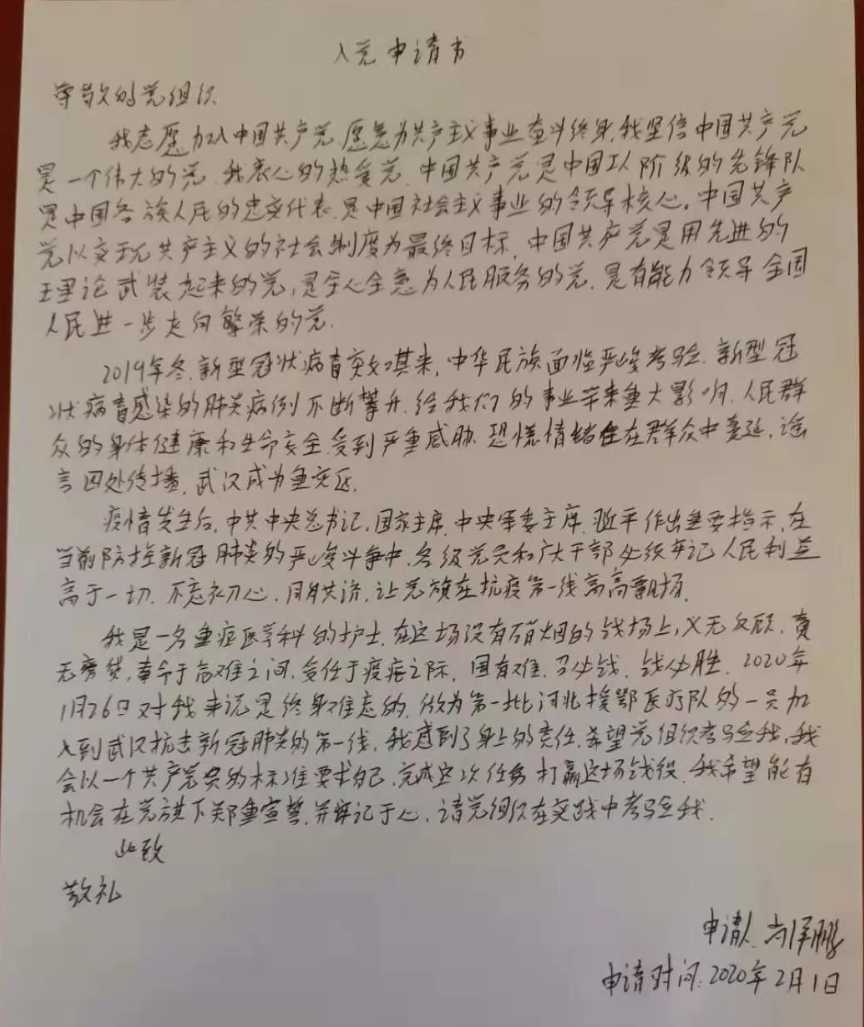 入党申请书
尊敬的党组织
我志愿加入中国共产党,愿意为共产主义事业奋斗终身,我坚信中国共产党
是一个伟大的党.我衷心的热爱党.中国共产党是中国工人阶级的先锋队
是中国各族人民的忠实代表.是中国社会主义事业的领导核心.中国共产
党以实现共产主义的社会制度为最终目标.中国共产党是用先进的
理论武装起来的党,是全心全意为人民服务的党.是有能力领导全国
人民进一步走向繁荣的党.
2019年冬.新型冠状病毒突如其来,中华民族面临严峻考验.新型冠
状病毒感染的肺炎病例不断攀升.给我们的事业带来重大影响.人民群
众的身体健康和生命安全受到严重威胁.恐慌情绪在群众中蔓延,谣
言四处传播.武汉成为重灾区.
疫情发生后.中共中央总书记.国家主席.中央军委主席.近平作出重要指示.在
当前防控新冠肺炎的严峻斗争中.各级党员和广大干部必须牢记人民利益
高于一切.不忘初心.同舟共济.让党旗在抗疫第一线高高飘扬.
我是一名重症医学科的护士.在这场没有硝烟的战场上,义无反顾.责
无旁贷,奉命于危难之间.受任于疫症之际.国有难.召必战.战必胜.2020年
1月26日对我来说是终身难忘的.做为第一批河北援鄂医疗队的一员加
入到武汉抗击新冠肺炎的第一线.我感到了身上的责任.希望党组织考验我,我
会以一个共产党员的标准要求自己.完成这次任务.打赢这场战役.我希望能有
机会在党旗下郑重宣誓.并牢记于心.请党组织在实践中考验我.
此致
敬礼
申请人.鹏
申请时间:2020年2月1日